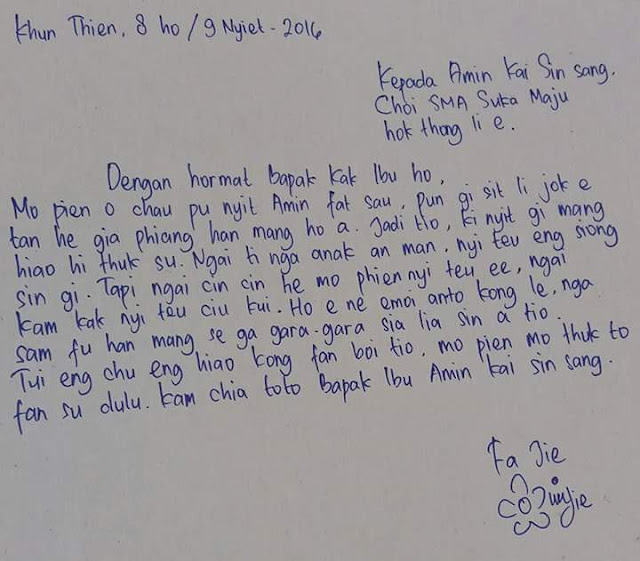 Khun Thien, 8 ho / 9 Nyiet - 2016
Kepada Amin Kai Sin sang.
Choi SMA Suka Maju
hok thong li e.
Dengan hormat Bapak kak Ibu ho,
Mo pien o chau pu nyit Amin fat sau, pun gi sit li jok e
tan he gia phiang han mang ho a. Jadi tio, ki nyit gi mang
hiao hi thuk su. Ngai ti nga anak an man, nyi teu eng siong
sin gi. Tapi ngai cin cin he mo phien nyi teu ee, ngai
kam kak nyi teu ciu kui. Ho e ne emoi anto kong le, nga
sam fu han mang se ga gara-gara sia lia sin a tio.
Tui eng chu eng hiao kong fan boi tio, mo pien mo thuk to
fan su dulu. Kam chia toto Bapak Ibu Amin kai sin sang.
Fa Jie